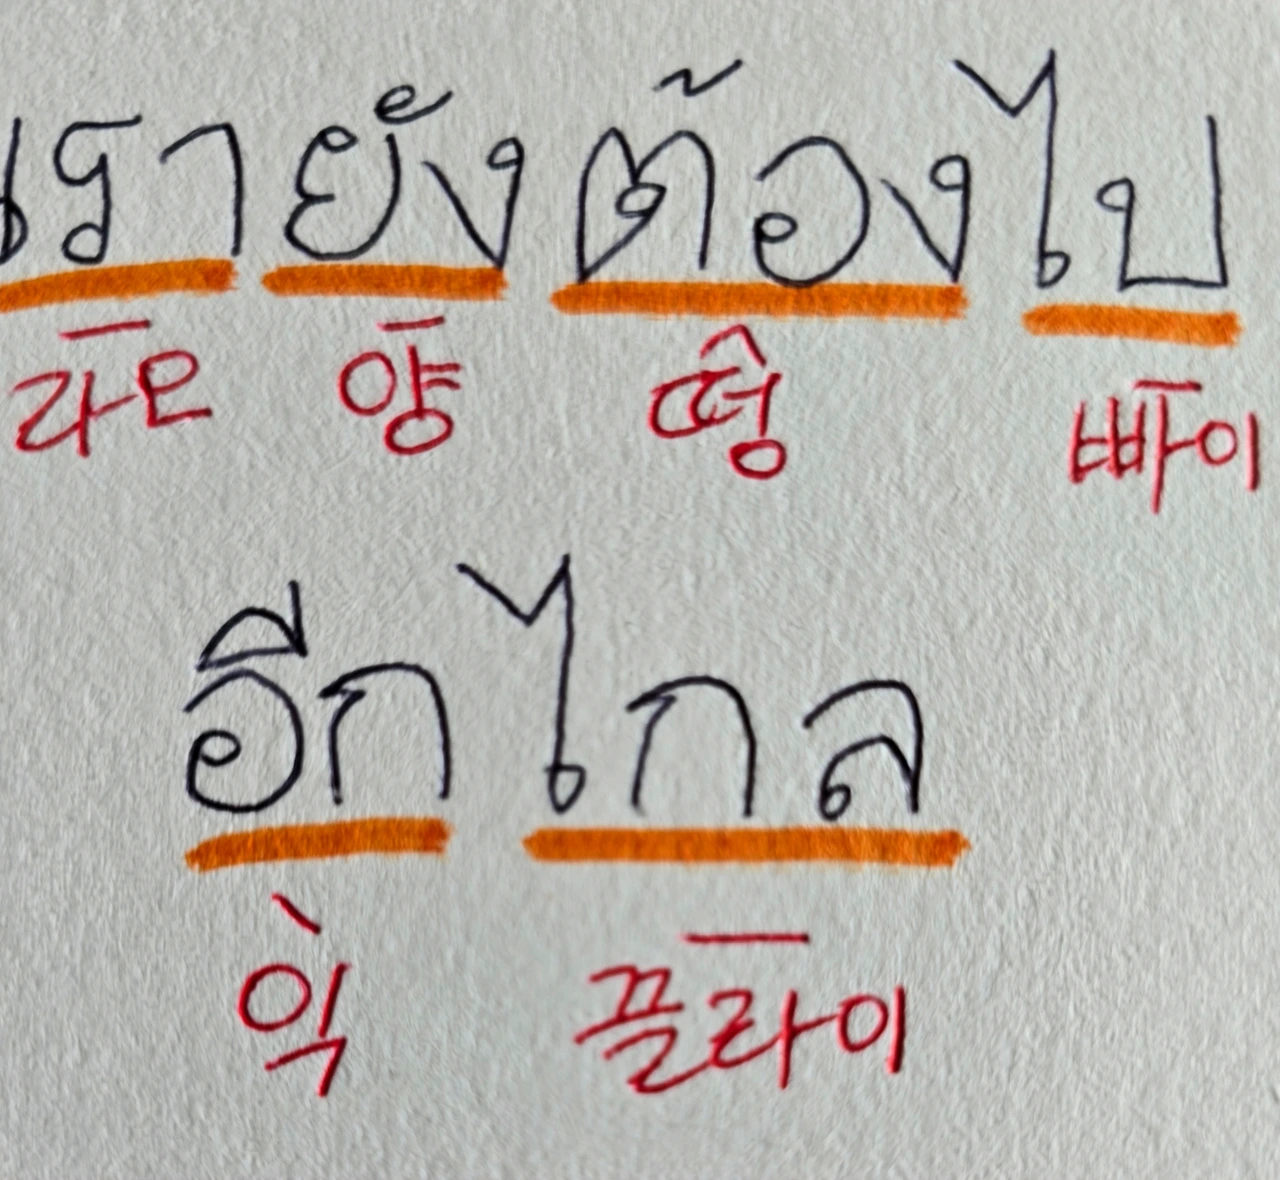 เรา ยัง ต้อง ไป
라오 양 떵 빠이
อีก ไกล
익 끌라이